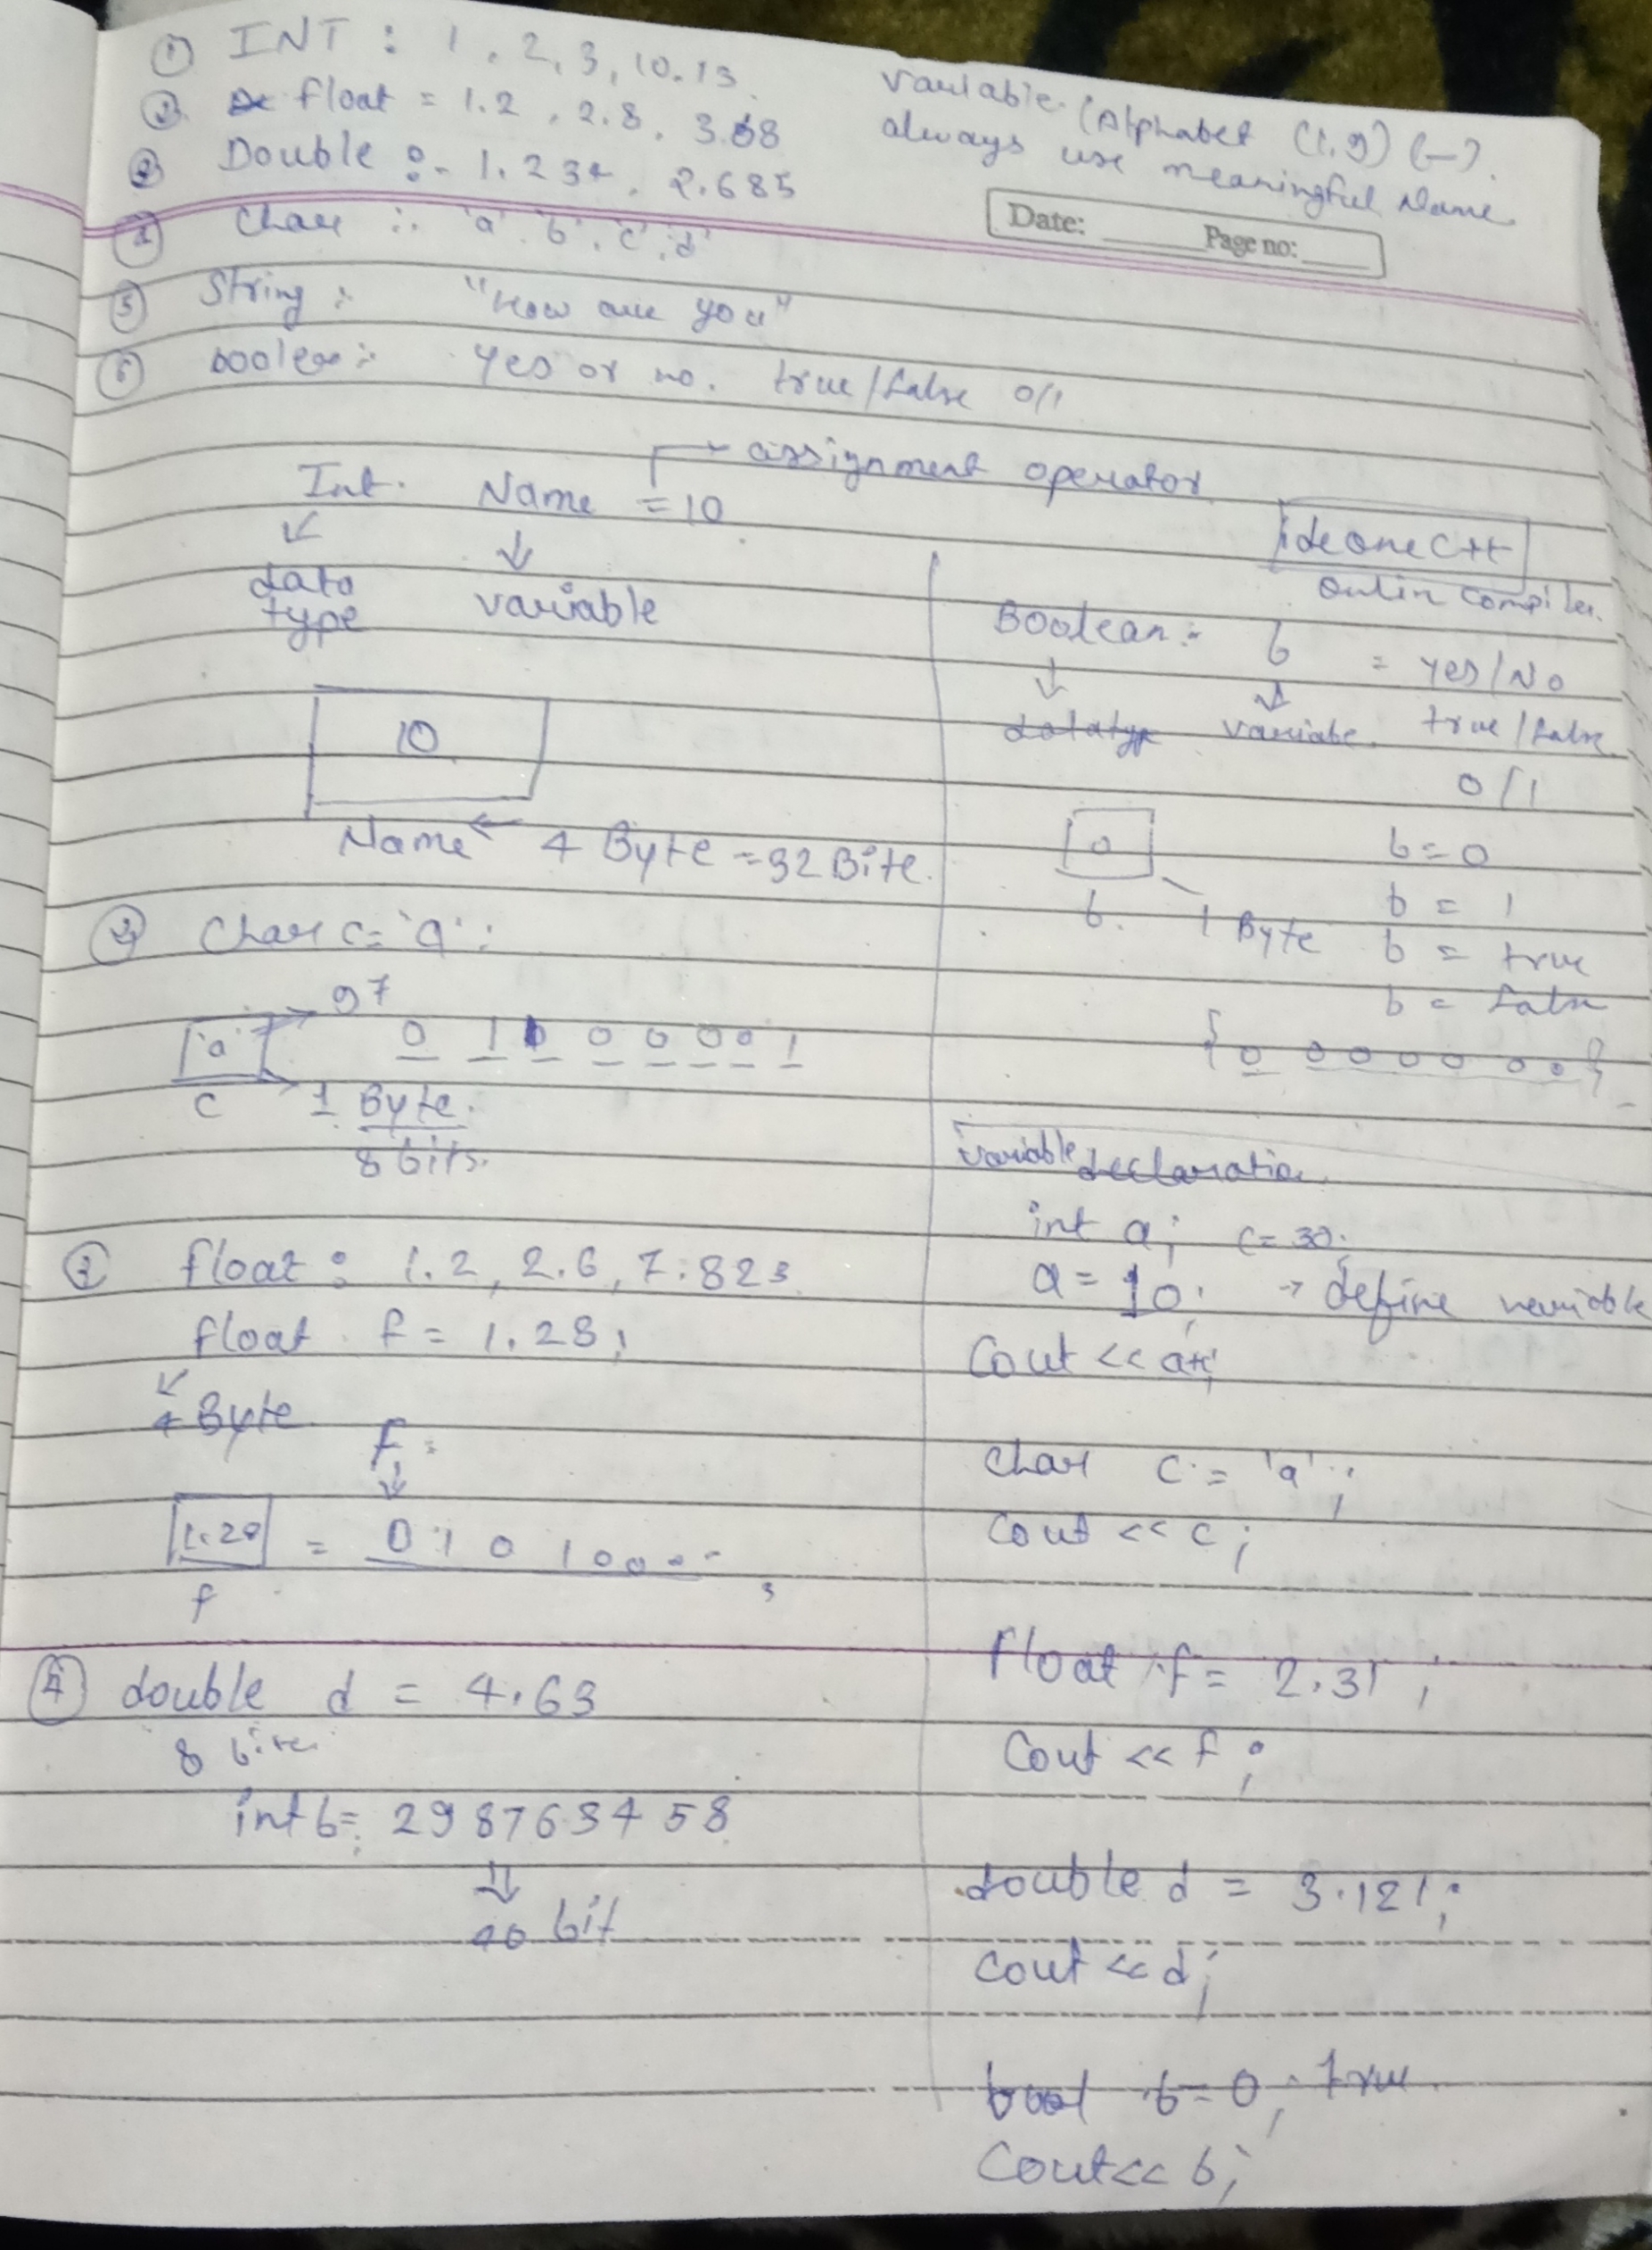 ① INT : 1, 2, 3, 10.13.
② float = 1.2, 2.8, 3.68
③ Double :- 1.234, 2.685
variable (Alphabet (1,9) (-).
always use meaningful Name.
Date: ____ Page no: ____
④ Char :. 'a' 'b', 'c', 'd'
⑤ String :. "How are you"
⑥ boolean :- Yes or no. true/false 0/1
assignment operator
Int. Name = 10
data type
variable
10
Name ← 4 Byte = 32 Bite.
② Char c= 'a' ;
97
'a' 0 1 1 0 0 0 0 1
c 1 Byte.
8 bits.
③ float : 1.2, 2.6, 7.823
float f = 1.28;
4 Byte
f =
1.28 = 0 1 0 1 0 0
f
④ double d = 4.63
8 bite
int b= 298763458
40 bit
ideone C++
Onlin compiler.
Boolean :- b = yes/No
datatype variable. true/false
0/1
0 b = 0
b. 1 Byte b = 1
b = true
b = false
{ 0 0 0 0 0 0 0 }
variable declaration
int a; c= 30;
a = 10; → define variable
Cout << a+c;
char c = 'a' ;
Cout << c ;
float f = 2.31 ;
Cout << f ;
double d = 3.121 ;
Cout << d ;
bool b = 0 ; true.
Cout << b ;